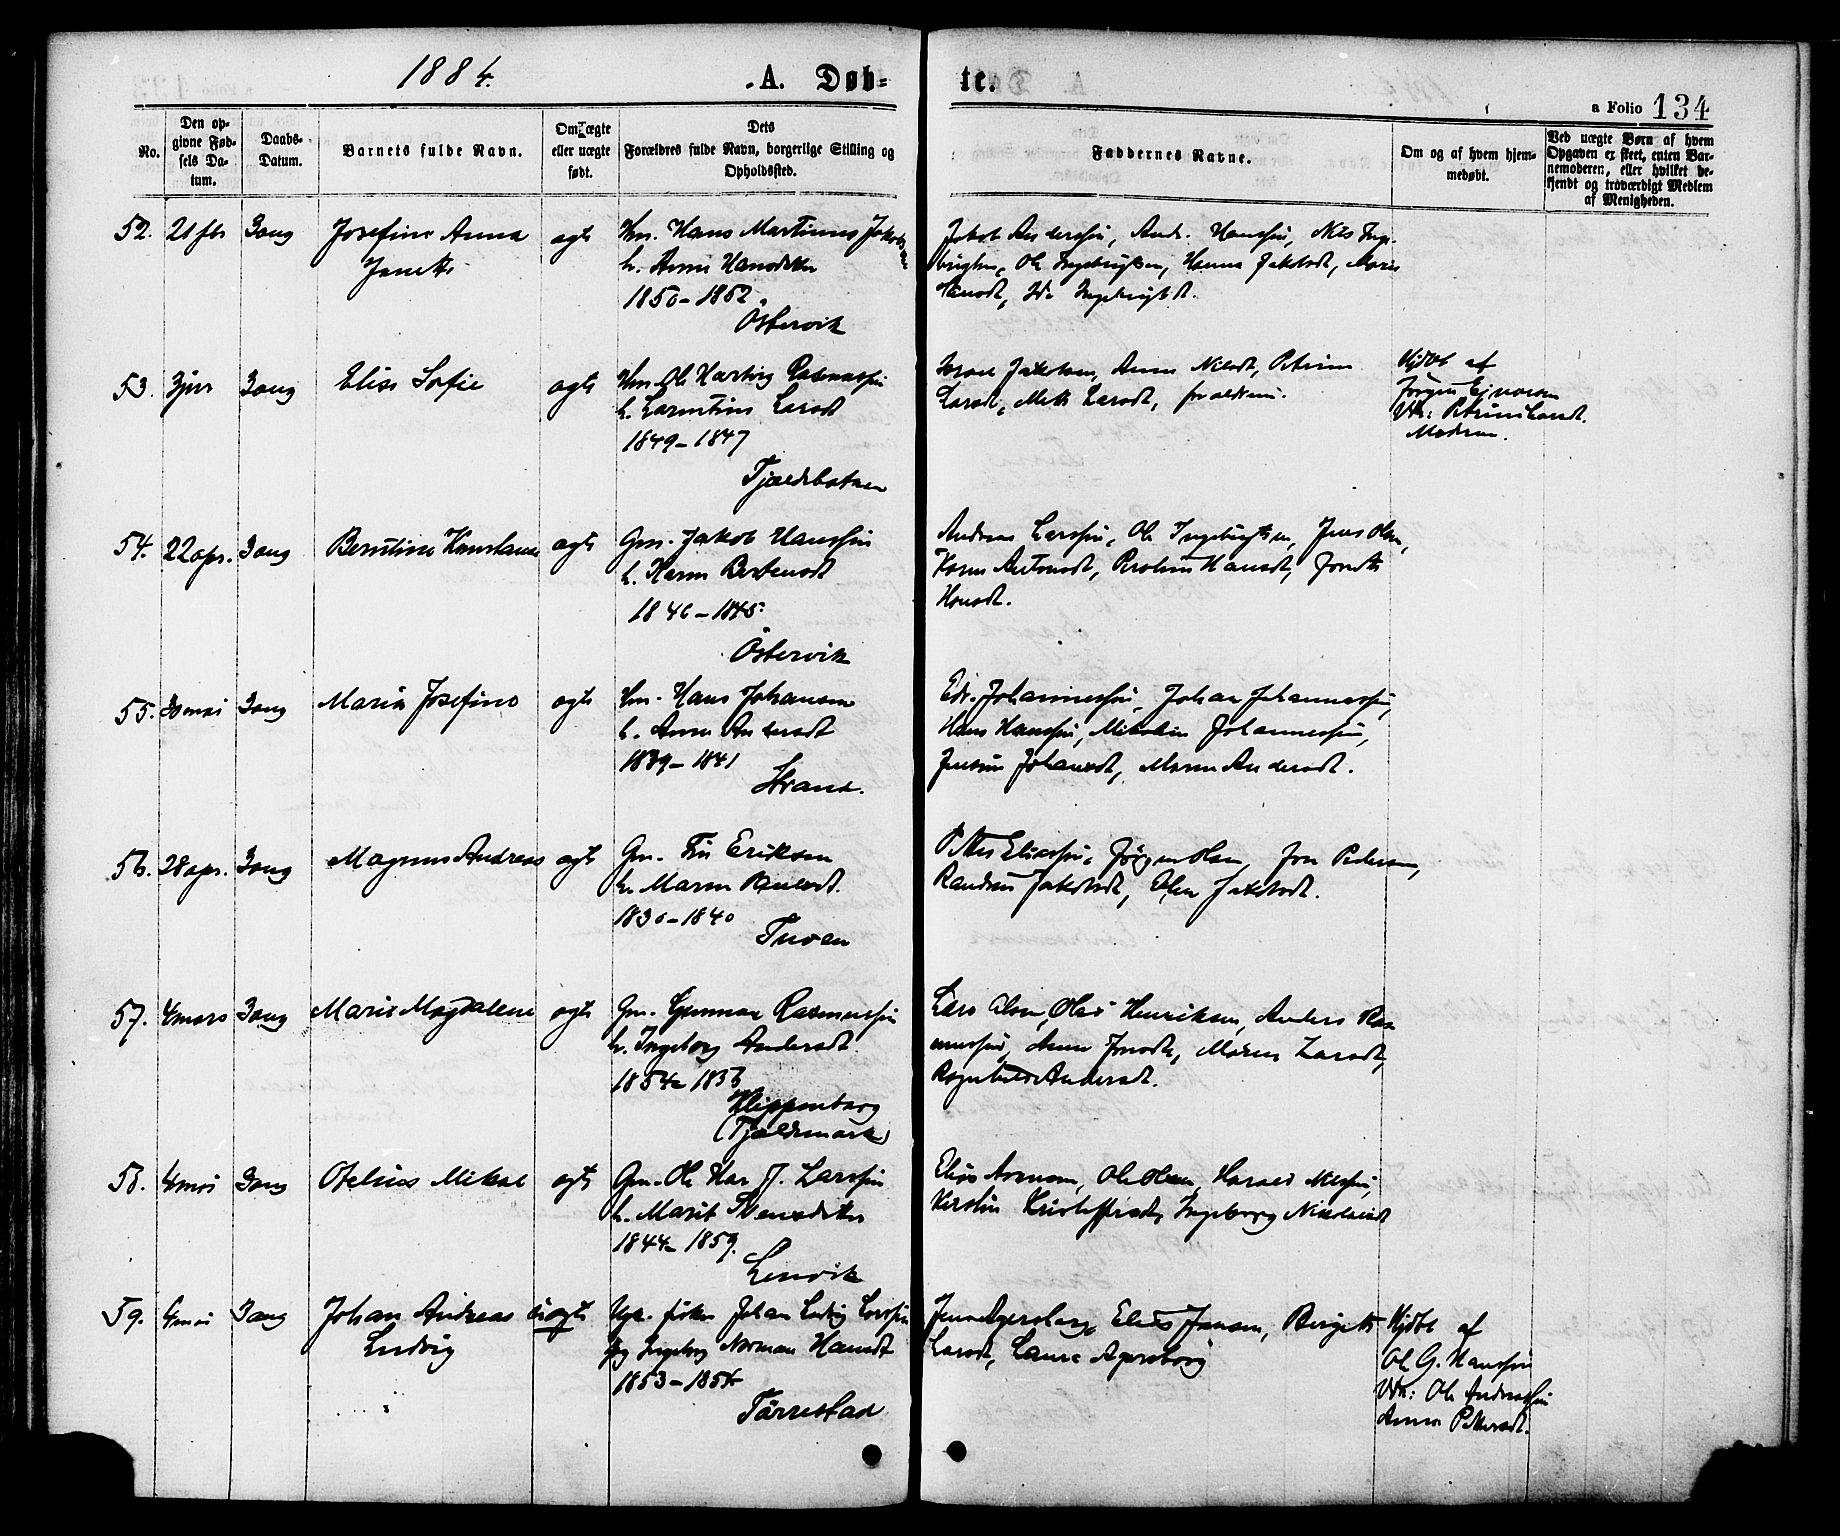 1884.
A. Døb=
te.
a Folio 134
No.
Den op-
givne Fød-
sels Da-
tum.
Daabs-
Datum.
Barnets fulde Navn.
Om ægte
eller uægte
født.
Dets
Forældres fulde Navn, borgerlige Stilling og
Opholdssted.
Faddernes Navne.
Om og af hvem hjem-
medøbt.
Ved uægte Børn af hvem
Opgaven er skeet, enten Bar-
nemoderen, eller hvilket be-
kjendt og troværdigt Medlem
af Menigheden.
52. 21 fbr 3 aug Josefine Anna
Janette
ægte
Hm. Hans Martinus Jakobsen
h. Anne Hansdatter
1850-1852.
Östervik
Jakob Anderssen, Andr. Hanssen, Nils Inge-
brigtsen, Ole Ingebrigtsen, Hanna Jakobsdt,
Hansdt, Ida Ingebrigtsdt.
53. 3 jun 3 aug Elise Sofie
ægte
Hm. Ole Hartvig Rasmussen
h. Larntine Larsdt
1849-1847
Tjældebotnen
Jakobsen, Anne Nilsdt, Petrine
Larsdt, Mette Larsdt, forældrene.
Hjdbt af
Jørgen Ejnarsen
Vdn: Petrine Larsdt.
Moderen.
54. 22 apr. 3 aug Berntine Konstanse
ægte
Gm. Jakob Hanssen
h. Karen Berteusdt
1846-1845
Östervik
Andreas Larssen, Ole Ingebrigtsen, Jens Olsen,
Karen Antonsdt, Hansdt, Jonette
Hansdt.
55. 30 mai 3 aug Maria Josefine
ægte
Hm. Hans Johansen
h. Anne Andersdt
1839-1841
Strand.
Edv. Johannessen, Johan Johannessen,
Hans Hanssen, Mikalin Johannessen,
Jensine Johansdt, Maren Andersdt.
56. 28 apr. 3 aug Magnus Andreas
ægte
Gm. Erikson
h. Maren Paulsdt.
1830-1840
Tuven
Petter Eliassen, Jörgen Olsen, Jon Pedersen,
Jakobsdt, Elen Jakobsdt.
57. 4 mars 3 aug Marie Magdalene
ægte
Gm. Gunnar Rasmussen
h. Ingeborg Andersdt
1854-1856
Klippenborg
(Tjældemark)
Lars Olsen, Olai Henriksen, Anders Ras-
mussen, Anne Jonsdt, Maren Larsdt,
Ragnhild Andersdt.
58. 4 mai 3 aug Otelius Mikal
ægte
Gm. Ole Kar J. Larssen
h. Marit Svensdatter
1844-1859.
Lenvik
Elias Arnesen, Ole Olsen, Harald Nilssen,
Kirstine Kristoffersdt, Ingeborg Nikolaisdt
59. 4 mai 3 aug Johan Andreas
Ludvig
uægte
Ugk. fisker Johan Ludvig Larssen
Pg Ingeborg Norman Hansdt
1853-1854
Tårrestad
Jens Agersborg, Elias Jansen, Birgitte
Larsdt, Laura Agersborg
Hjdbt af
Ole G. Hanssen
Vdn: Ole Andreassen
Anna Pettersdt.